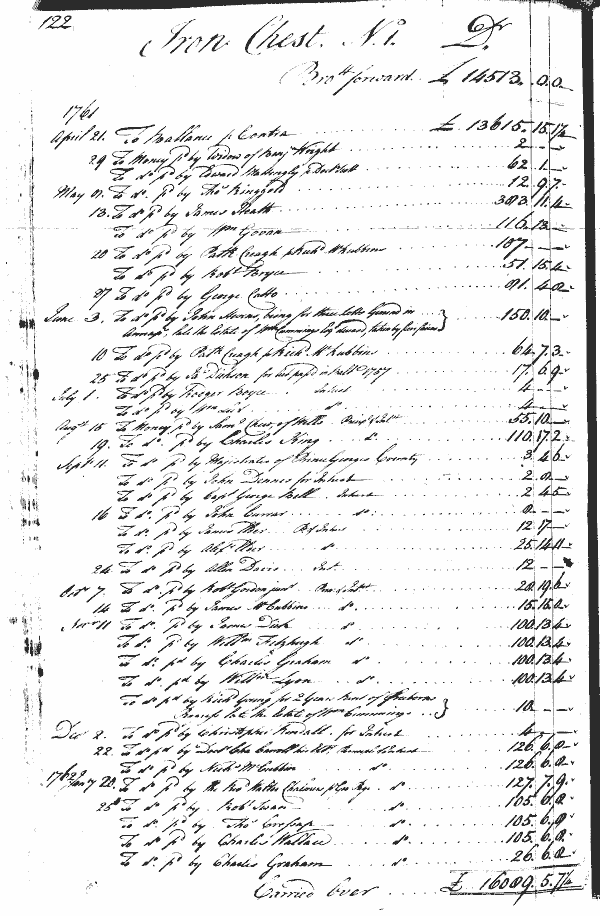 122
Iron Chest. No. 1. Dr
Brot forward £ 14513..0..0
1761
April 21. To Ballance p Contra £ 13615..15..1¼
29 To Money pd by Widow of Benj Wright 2 — —
To do pd by Edward Mattingly p 62..1 —
May 01. To do pd by Thos Ringgold 12..9..7
13. To do pd by James Heath 303..11..4
To do pd by Wm Govan 116..13 —
20 To do pd by Patk Creagh p Richd McKubbins 107 — —
To do pd by Robt Bryce 51..15..4
27 To do pd by George Catto 01..4..0
June 3. To do pd by John being for three Lotts Ground in
Annaps, late the Estate of Wm Cummings Esqr 150..10 —
10 To do pd by Patk Creagh p Richd McKubbins 64..7..3
25 To do pd by Jas Dickson for 1757 17..6..9
July 1. To do pd by Roger Boyce Interest 4 — —
To do pd by Wm do 4 — —
Augt 15 To Money pd by Saml Chew, of Wells Prinl & Intt 55..10 —
19. To do pd by Charles King do 110..17..2
Sept 11. To do pd by Magistrates of Prince Georges County 3..4..6
To do pd by John Dennis for Interest 2..0 —
To do pd by Capt George Bell Interest 2..4..5
16 To do pd by John Currar do 0 — —
To do pd by James Wier P & Interest 12..17 —
To do pd by Alexr Wier do 25..14..11
24 To do pd by Allen Davis Intt 12 — —
Octr 7. To do pd by Robt Gordon junr Prinl & Intt 20..19..6
14 To do pd by James McCubbin do 15..15..0
Novr 11 To do pd by James Dick do 100..13..4
To do pd by Willm Fitzhugh do 100..13..4
To do pd by Charles Graham do 100..13..4
To do pd by Willm Lyon do 100..13..4
To do pd by Richd Young for 2 Years Rent of
late the Estate of Wm Cummings 10 — —
Decr 2. To do pd by Christopher Randall for Interest 4 — —
22. To do pd by Doctr Chas Carroll Interest 126..6..0
To do pd by Nichs McCubbin do 126..6..0
1762 Jany 22. To do pd by the Revd do 127..7..9
25 To do pd by Robt Swan do 105..6..0
To do pd by Thos Cresap do 105..6..0
To do pd by Charles Wallace do 105..6..0
To do pd by Charles Graham do 26..6..0
Carried Over £ 16009..5..7¼